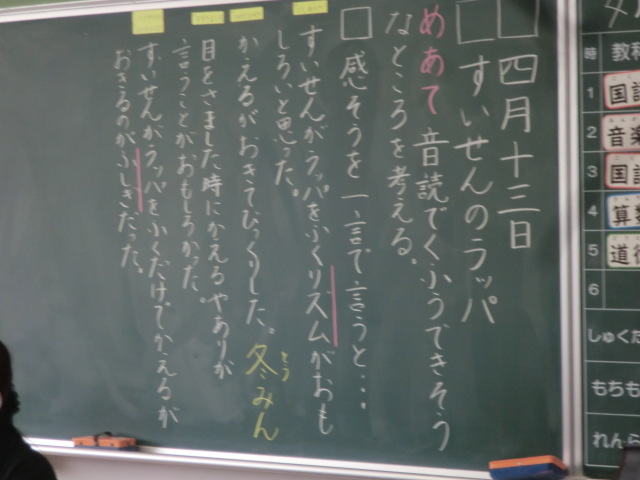 四月十三日
すいせんのラッパ
めあて 音読でくふうできそう
なところを考える。
感そうを一言で言うと…
すいせんがラッパをふくリズムがおも
しろいと思った。
かえるがおきてびっくりした。 冬みん
とう
目をさました時にかえるやありが
言うことがおもしろかった。
すいせんがラッパをふくだけでかえるが
おきるのがふしぎだった。
時 教科
1 国語
2 音楽
3 国語
4 算数
5 道徳
6
しゅくだ
もちも
れんら